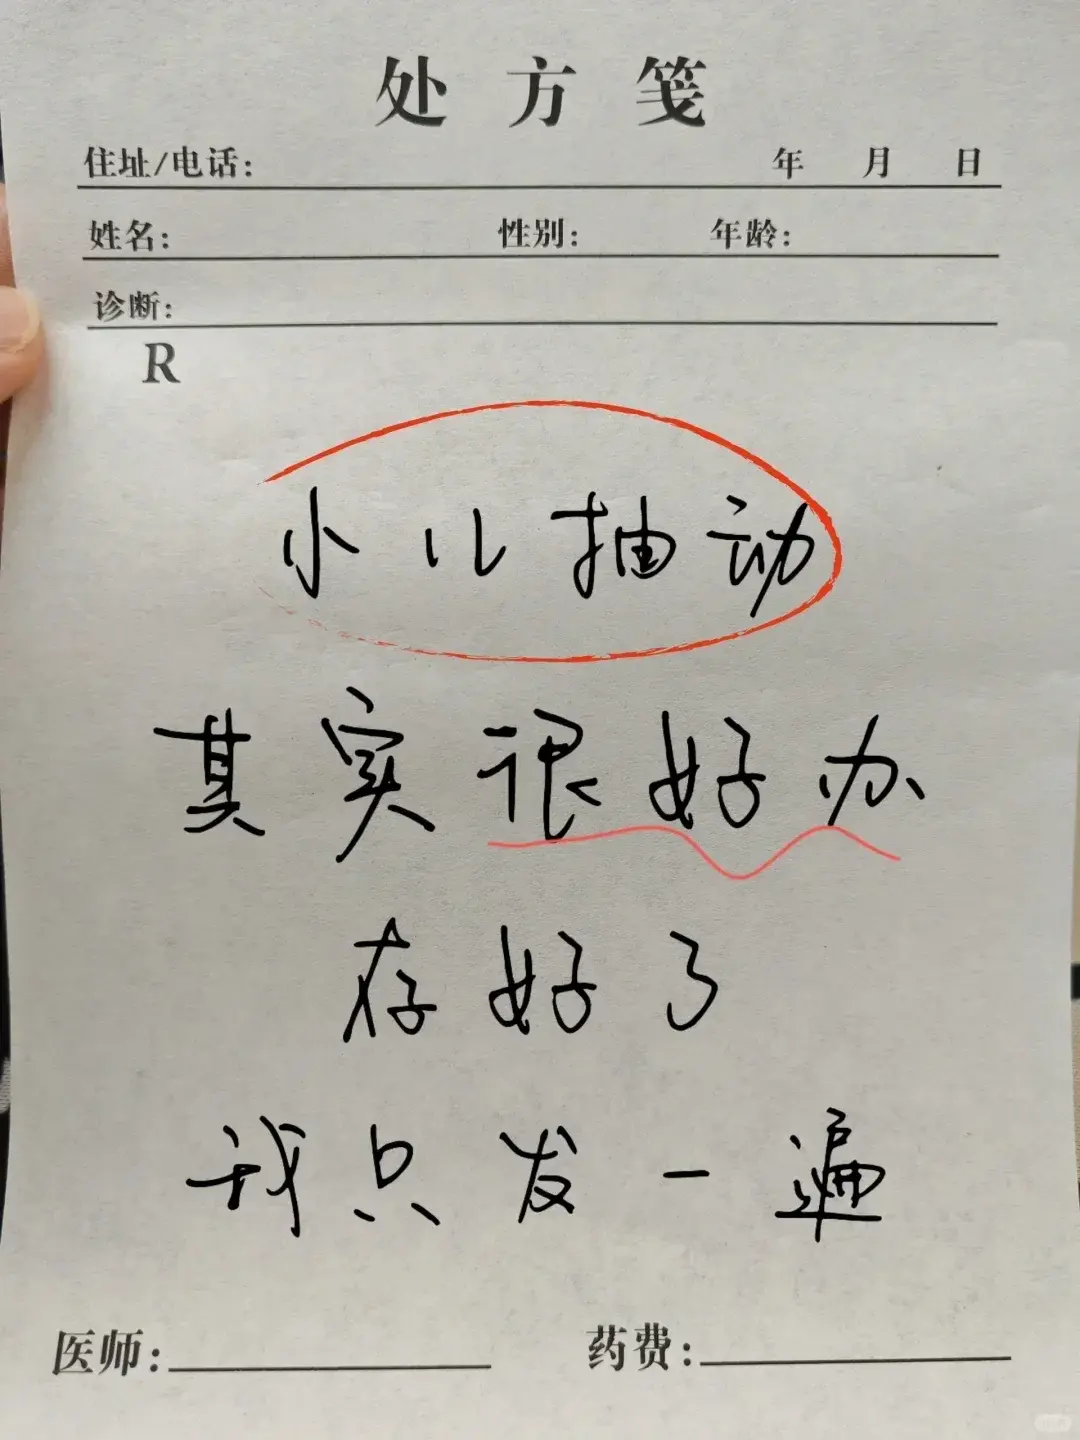 处方笺
住址/电话: 年 月 日
姓名: 性别: 年龄:
诊断:
R
小儿抽动
其实很好办
存好了
我只发一遍
医师: 药费: